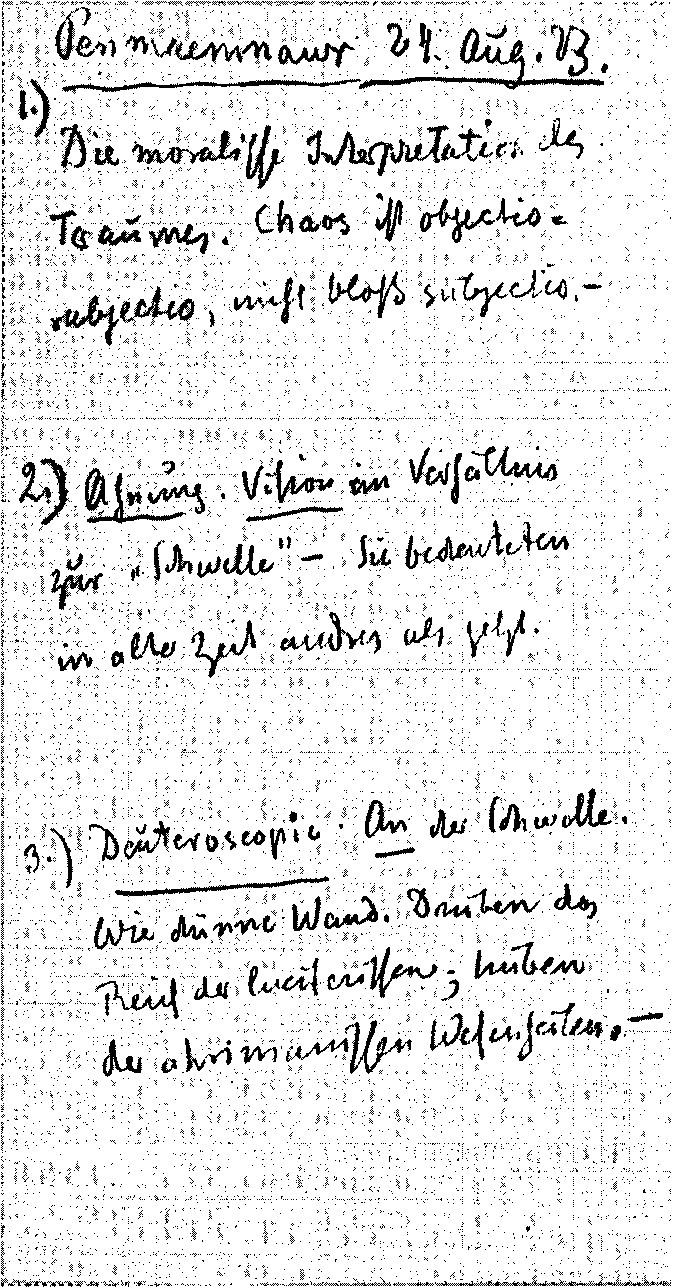 Penmaenmawr 24. Aug. 23.
1.)
Die moralische Interpretation des
Traumes. Chaos ist objectiv-
subjectiv, nicht bloß subjectiv. –
2.) Ahnung. Vision im Verhältnis
zur „Schwelle“ – Sie bedeuteten
in alter Zeit andres als jetzt.
3.) Deuteroscopie. An der Schwelle.
Wie dünne Wand. Drüben das
Reich der luciferischen; hüben
der ahrimanischen Wesenheiten. –